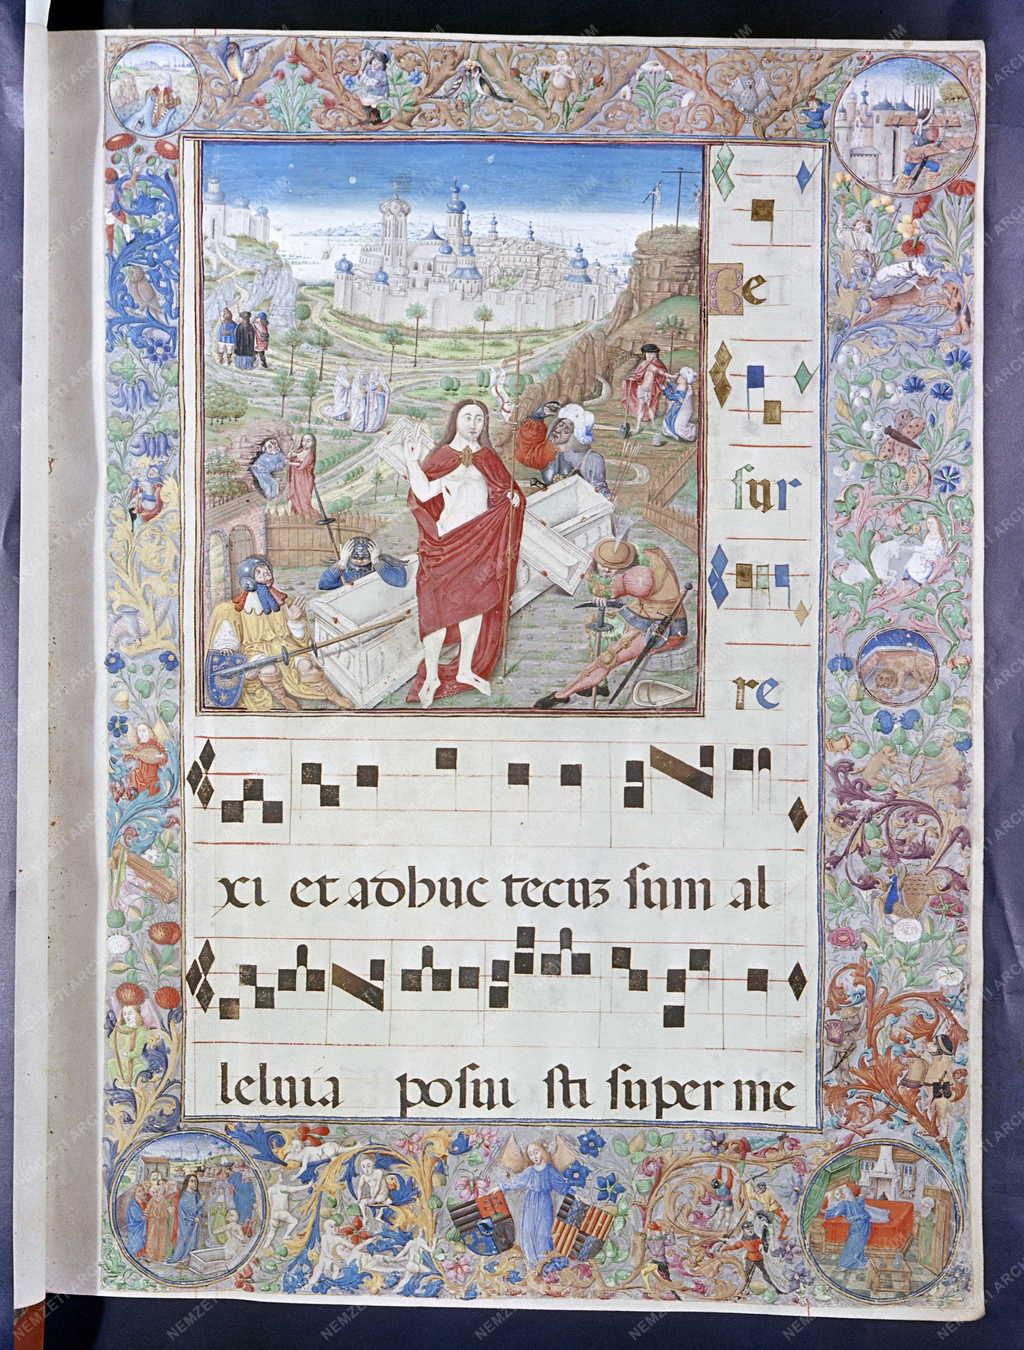 Re
sur
re
xi et adhuc tecuz sum al
leluia posui sti super me
NEMZETI ARCHÍVUM